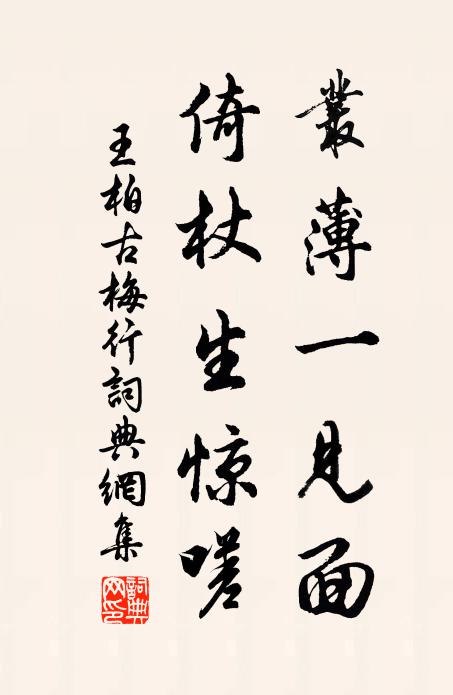 叢薄一見面
倚杖生惊嗟
王柏古梅行詞典網集
詞典
网印